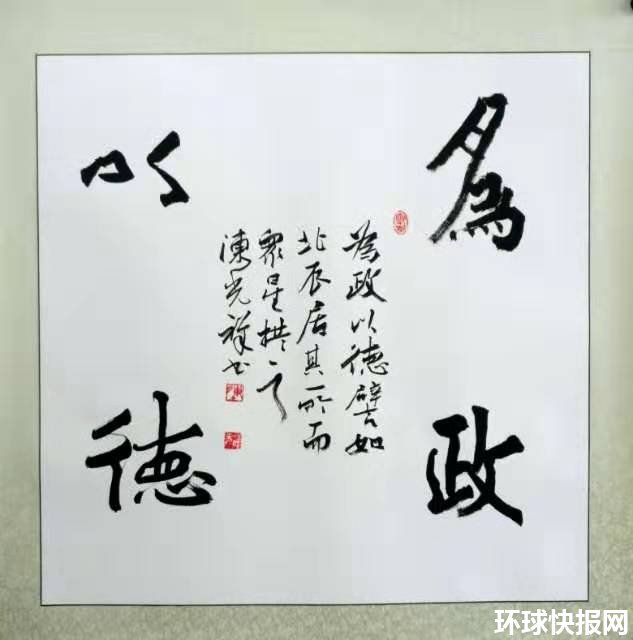 為政
以德
為政以德譬如
北辰居其所而
眾星拱之
陳光祥书
环球快报网